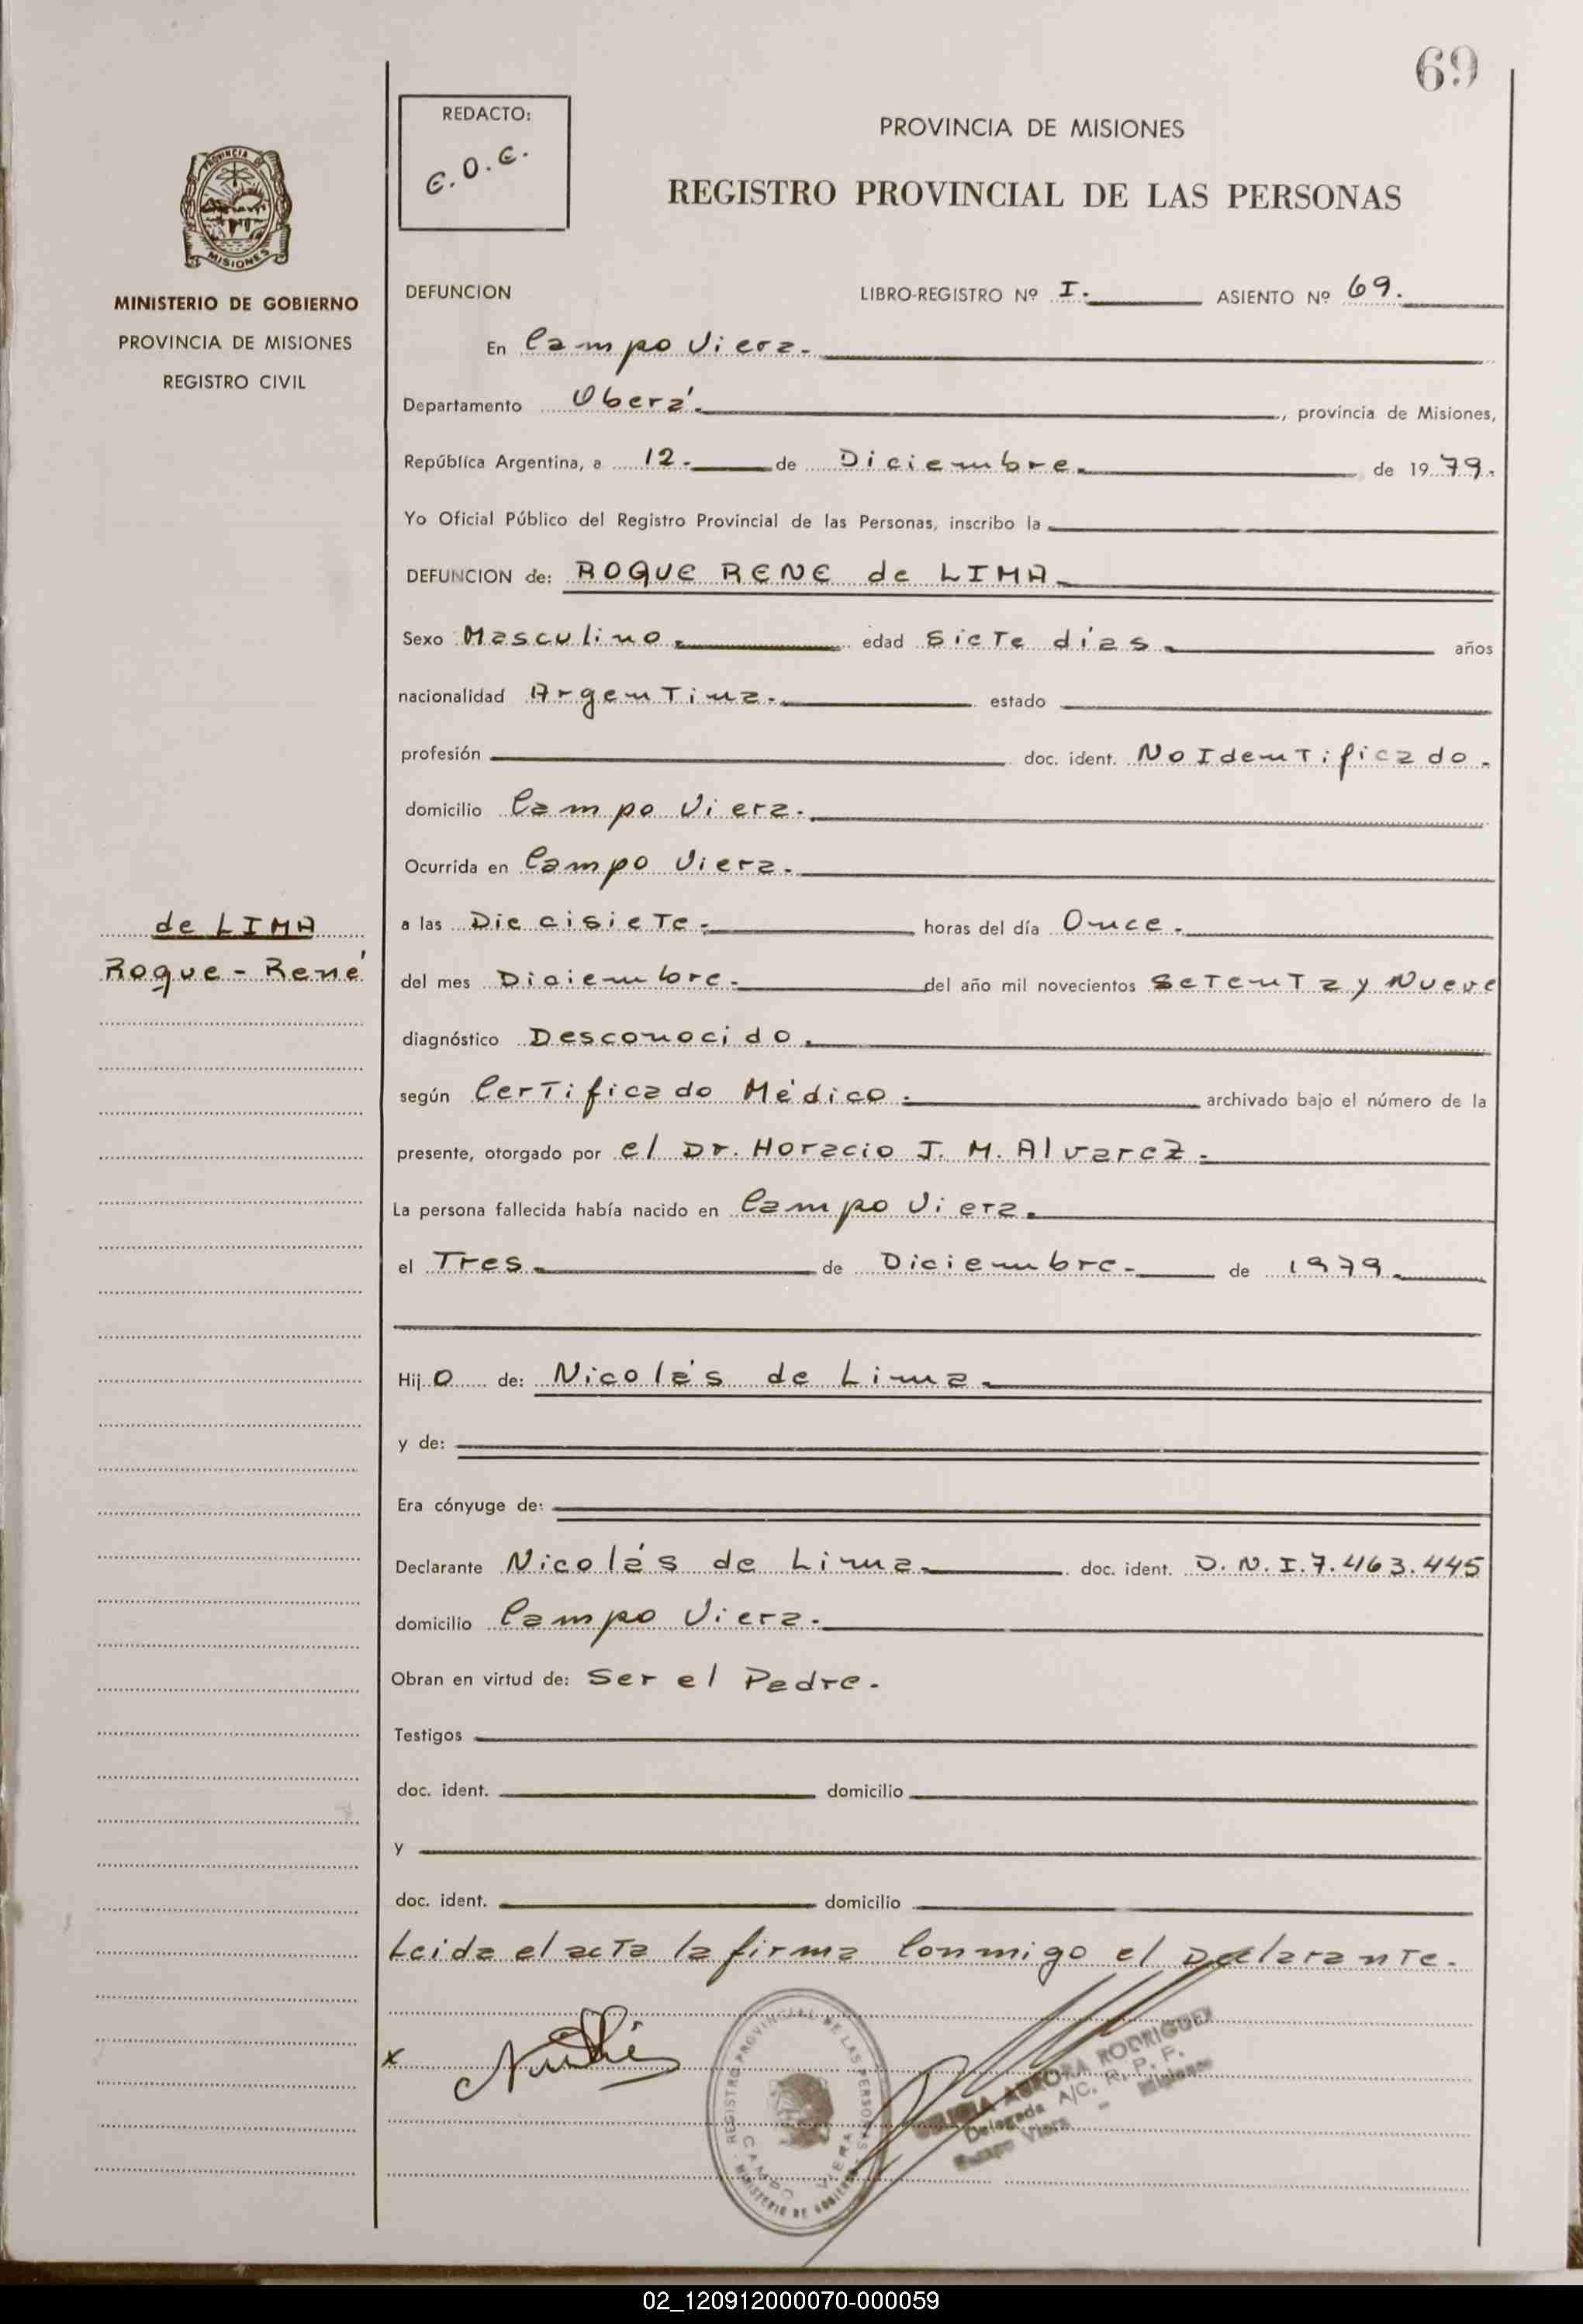 69
REDACTO:
E.O.E.
PROVINCIA DE MISIONES
REGISTRO PROVINCIAL DE LAS PERSONAS
PROVINCIA DE MISIONES
MINISTERIO DE GOBIERNO
PROVINCIA DE MISIONES
REGISTRO CIVIL
DEFUNCION LIBRO-REGISTRO Nº I. ASIENTO Nº 69.
En Campo Viera.
Departamento Oberá., provincia de Misiones,
República Argentina, a 12. de Diciembre. de 1979.
Yo Oficial Público del Registro Provincial de las Personas, inscribo la
DEFUNCION de: ROQUE RENE de LIMA.
Sexo Masculino. edad Siete días. años
nacionalidad Argentina. estado
profesión doc. ident. No Identificado.
domicilio Campo Viera.
Ocurrida en Campo Viera.
de LIMA
Roque - René
a las Diecisiete. horas del día Once.
del mes Diciembre. del año mil novecientos Setenta y Nueve
diagnóstico Desconocido.
según Certificado Médico. archivado bajo el número de la
presente, otorgado por el Dr. Horacio J. M. Alvarez.
La persona fallecida había nacido en Campo Viera.
el Tres. de Diciembre. de 1979.
Hijo de: Nicolás de Lima.
y de:
Era cónyuge de:
Declarante Nicolás de Lima. doc. ident. D.N.I. 7.463.445
domicilio Campo Viera.
Obran en virtud de: Ser el Padre.
Testigos
doc. ident. domicilio
y
doc. ident. domicilio
Leida el acta la firma Conmigo el Declarante.
x
REGISTRO PROVINCIAL DE LAS PERSONAS
CAMPO VIERA
MINISTERIO DE GOBIERNO
AURORA RODRIGUEZ
Delegada A/C. R. P. P.
Campo Viera - Misiones
02_120912000070-000059